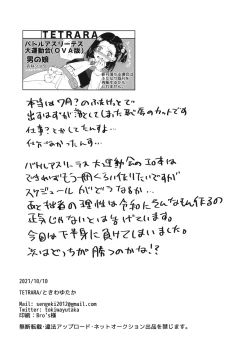 TETRARA
バトルアスリーテス
大運動会(OVA版)
男の娘
本当は7月?のふたけっとで
出すはずが落としてしまった恥辱のカットです
仕事?とかしてたんすよ…
仕方なかったんす…
バトルアスリーテス大運動会のエロ本は
できればもう一冊くらい作りたいですが
スケジュールがどうなるか…
あと拙者の理性は令和にそんなもん作るの
正気じゃないとは告げています。
今回は下半身に負けてしまいました。
次はどっちが勝つのかな!?
2021/10/10
TETRARA/ときわゆたか
Mail: sengoki2012@gmail.com
Twitter: tokiwayutaka
印刷:Bro's様
無断転載・違法アップロード・ネットオークション出品を禁じます。